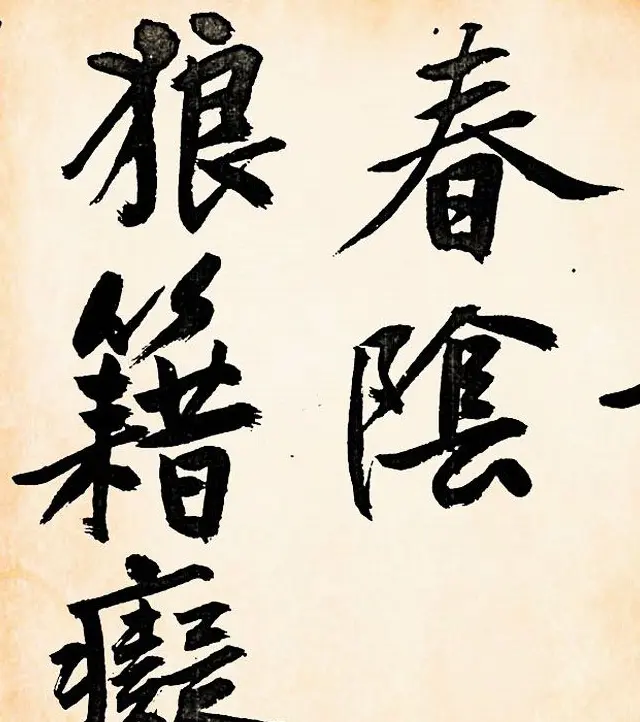 春陰
狼籍癡